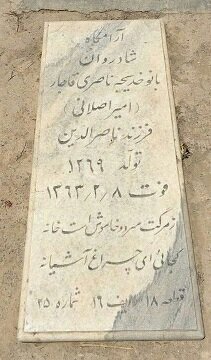 آرامگاه
شادروان
بانو خدیجه ناصری قاجار
(امیر اصلانی)
فرزند ناصرالدین
تولد ۱۲۶۹
فوت ۱۳۶۳/۲/۸
ز مرگت سرد و خاموش است خانه
کجائی ای چراغ آشیانه
قطعه ۱۸ ردیف ۱۶ شماره ۲۵